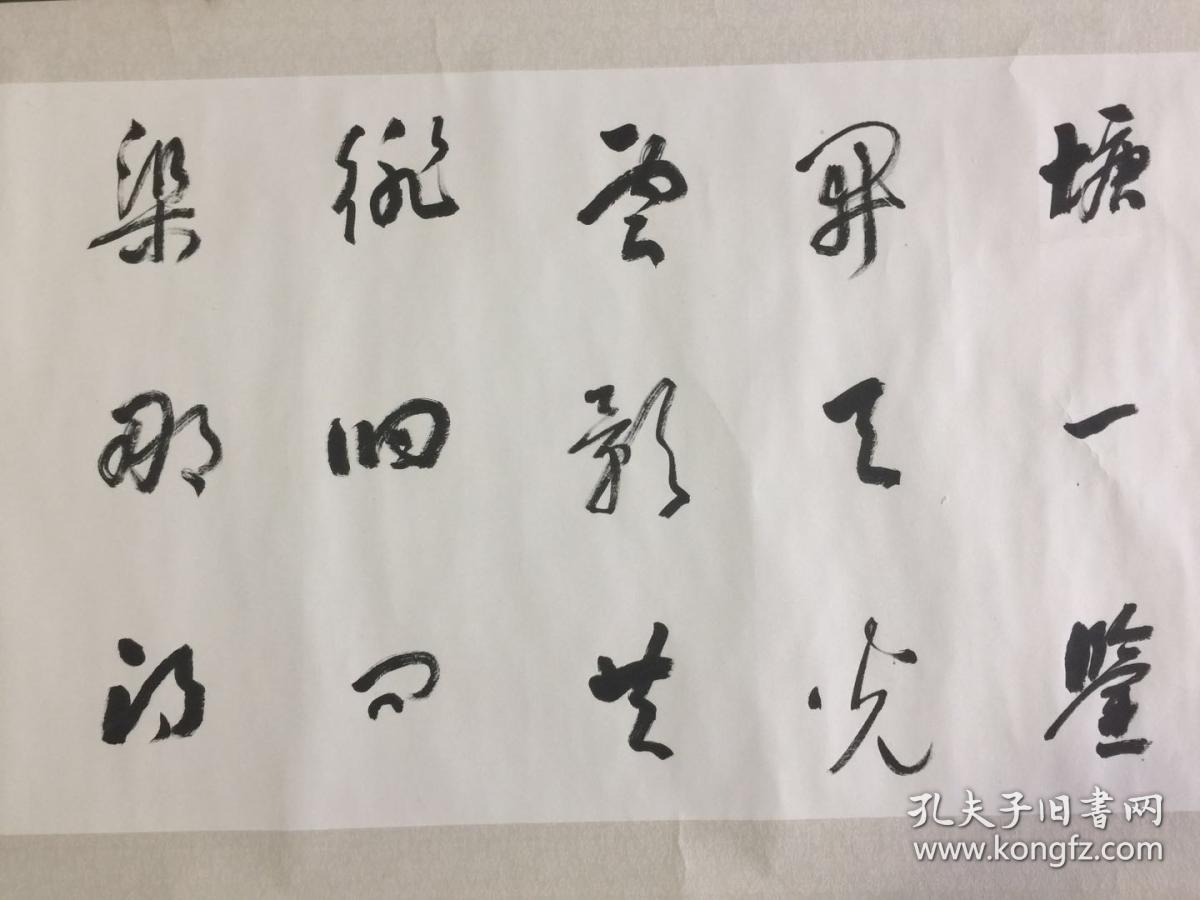 塘一鑒
開天光
雲影共
徘徊問
渠那得
孔夫子旧書网
www.kongfz.com